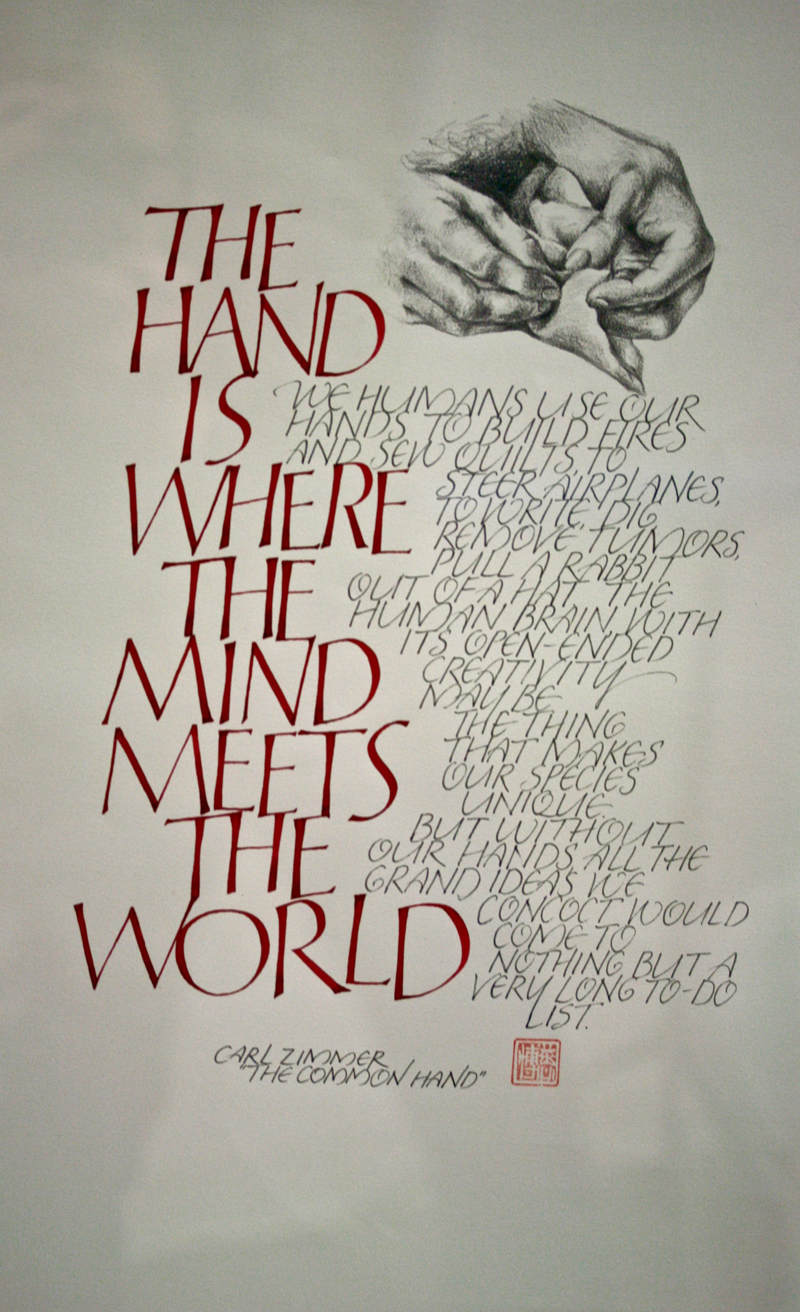 THE
HAND
IS
WHERE
THE
MIND
MEETS
THE
WORLD
WE HUMANS USE OUR
HANDS TO BUILD FIRES
AND SEW QUILTS, TO
STEER AIRPLANES,
TO WRITE, DIG
REMOVE TUMORS,
PULL A RABBIT
OUT OF A HAT. THE
HUMAN BRAIN, WITH
ITS OPEN-ENDED
CREATIVITY
MAY BE
THE THING
THAT MAKES
OUR SPECIES
UNIQUE.
BUT WITHOUT
OUR HANDS ALL THE
GRAND IDEAS WE
CONCOCT WOULD
COME TO
NOTHING BUT A
VERY LONG TO-DO
LIST.
CARL ZIMMER
"THE COMMON HAND"